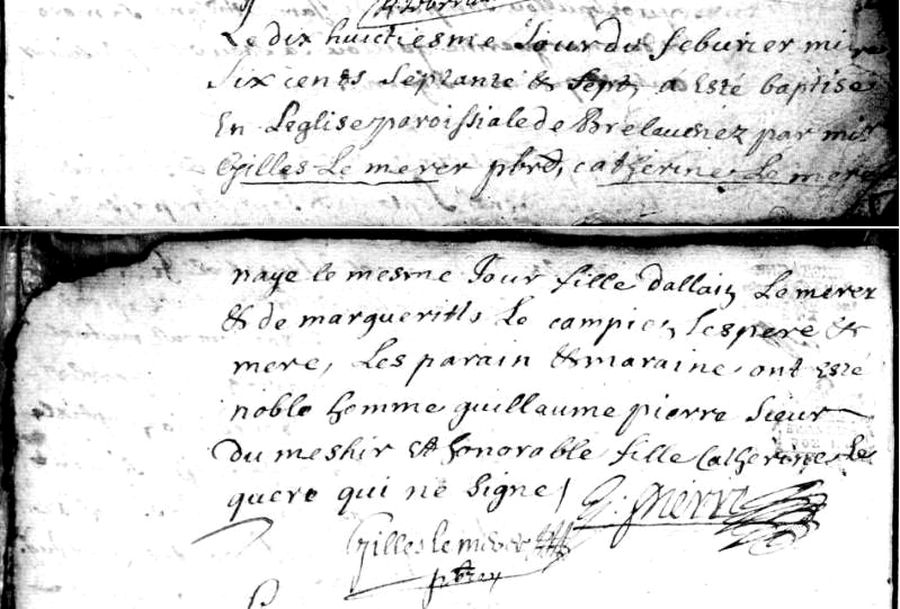 Le dix huictiesme Jour du feburier mi
Six cents Septante & Sept, a Esté baptisé
En Leglise paroissiale de Brelauenez par mis
Gilles Le merer pbre, catherine Le merer
naye le mesme Jour fille dallain Le merer
& de margueritte Le campion ses pere &
mere, Les parain & maraine ont esté
noble homme guillaume pierre Sieur
Du meshir Et honorable fille Catherine Le
quere qui ne signe /
G. pierre
Gilles Le merer
pbre